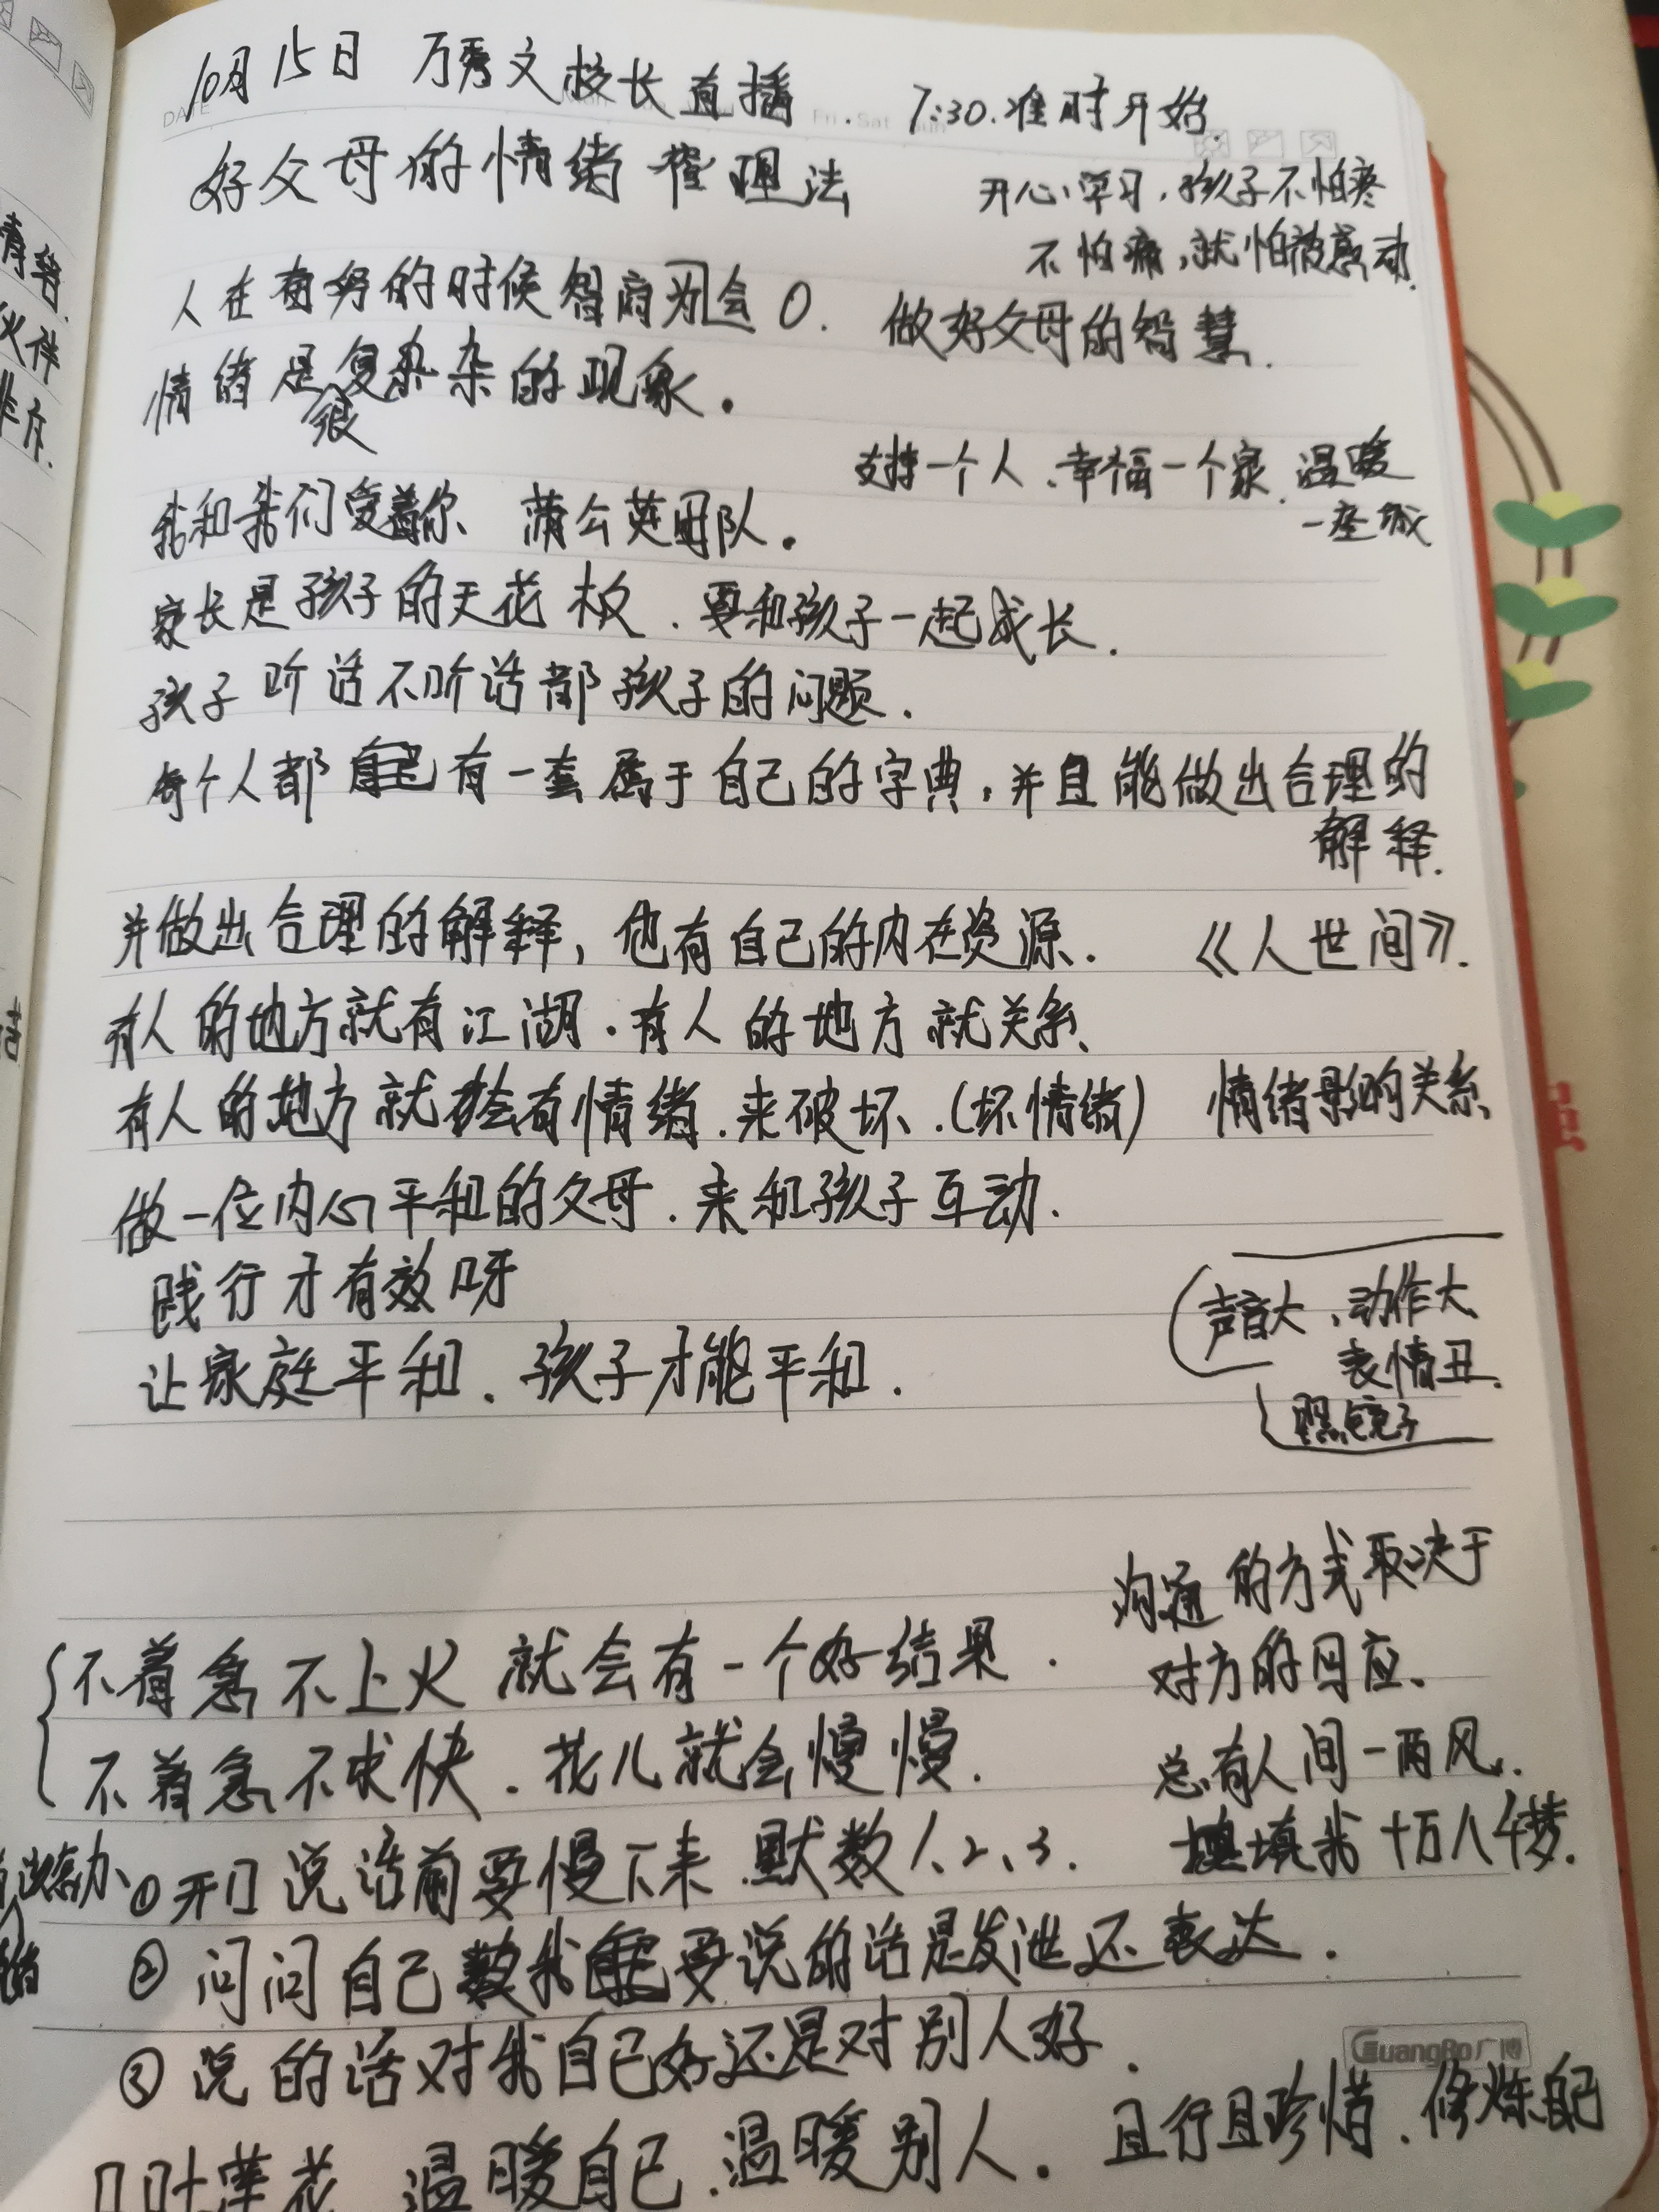 10月15日 万秀文校长直播 7:30.准时开始.
好父母的情绪管理法
开心学习,孩子不怕疼
不怕痛,就怕被感动.
人在奋努的时候智商为会0. 做好父母的智慧.
情绪是很复杂杂的现象。
支持一个人、幸福一个家.温暖
一座城
我和我们爱着你 蒲公英团队。
家长是孩子的天花板.要和孩子一起成长.
孩子听话不听话都孩子的问题.
每个人都有一套属于自己的字典,并且能做出合理的
解释.
并做出合理的解释,也有自己的内在资源. 《人世间》.
有人的地方就有江湖.有人的地方就关系、
有人的地方就会有情绪.来破坏.(坏情绪) 情绪影响关系
做一位内心平和的父母.来和孩子互动.
践行才有效呀
让家庭平和.孩子才能平和.
声音大、动作大
表情丑.
照镜子
沟通的方式取决于
对方的回应、
不着急不上火 就会有一个好结果.
不着急不求快.花儿就会慢慢.
总有人间一两风.
填我十万八千梦.
①开口说话前要慢下来.默数1、2、3.
②问问自己我要说的话是发泄还表达.
③说的话对我自己好还是对别人好.
口吐莲花 温暖自己.温暖别人。且行且珍惜.修炼自己
GuangBo广博